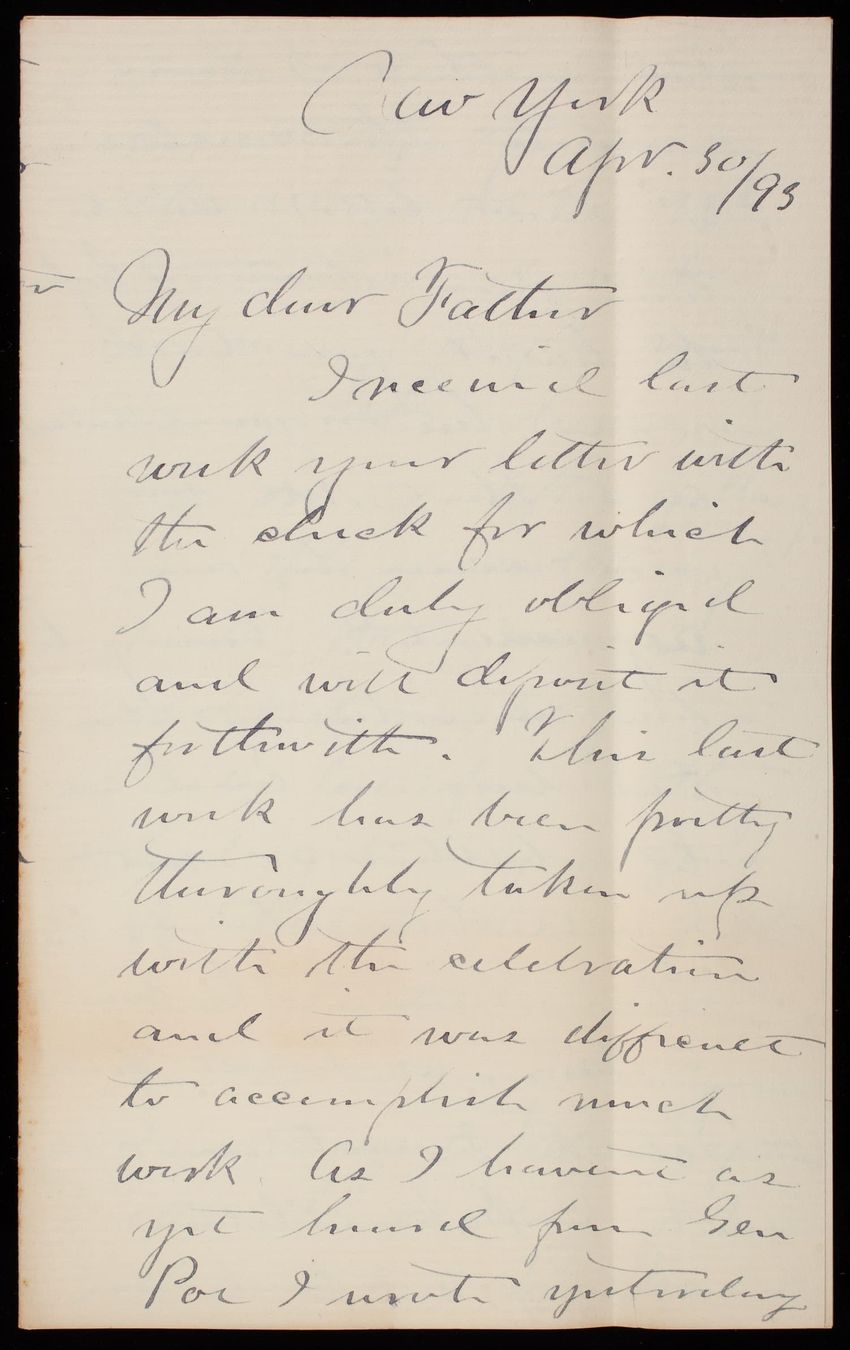 New York
Apr. 30/93
My dear Father
I received last
week your letter with
the check for which
I am duly obliged
and will deposit it
forthwith. This last
week has been pretty
thoroughly taken up
with the celebration
and it was difficult
to accomplish much
work. As I havent as
yet heard from Gen
Poe I wrote yesterday